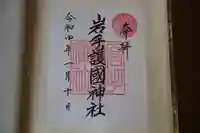 奉拝
岩手護國神社
令和四年一月十日